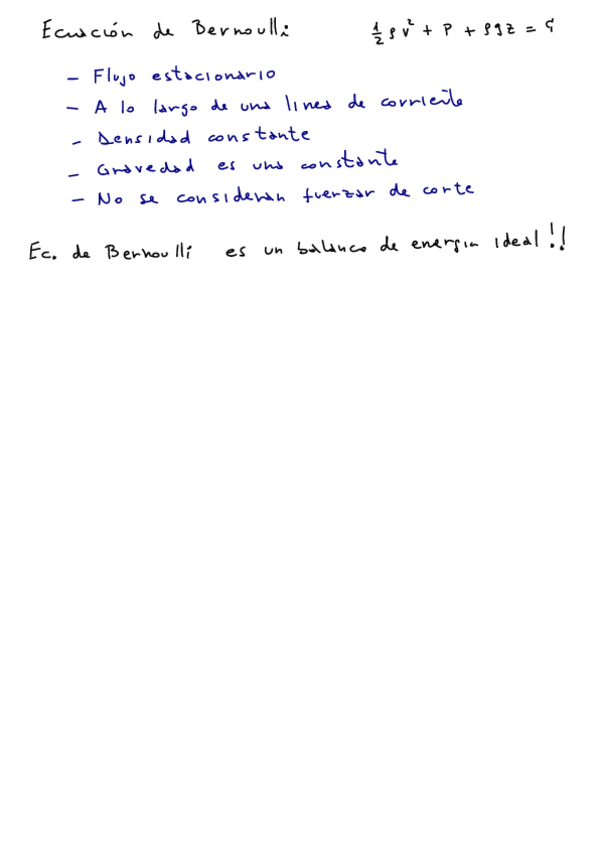 Ecuación de Bernoulli ½ ρ v² + P + ρgz = ς
- Flujo estacionario
- A lo largo de una linea de corriente
- Densidad constante
- Gravedad es una constante
- No se consideran fuerzar de corte
Ec. de Bernoulli es un balance de energia ideal!!